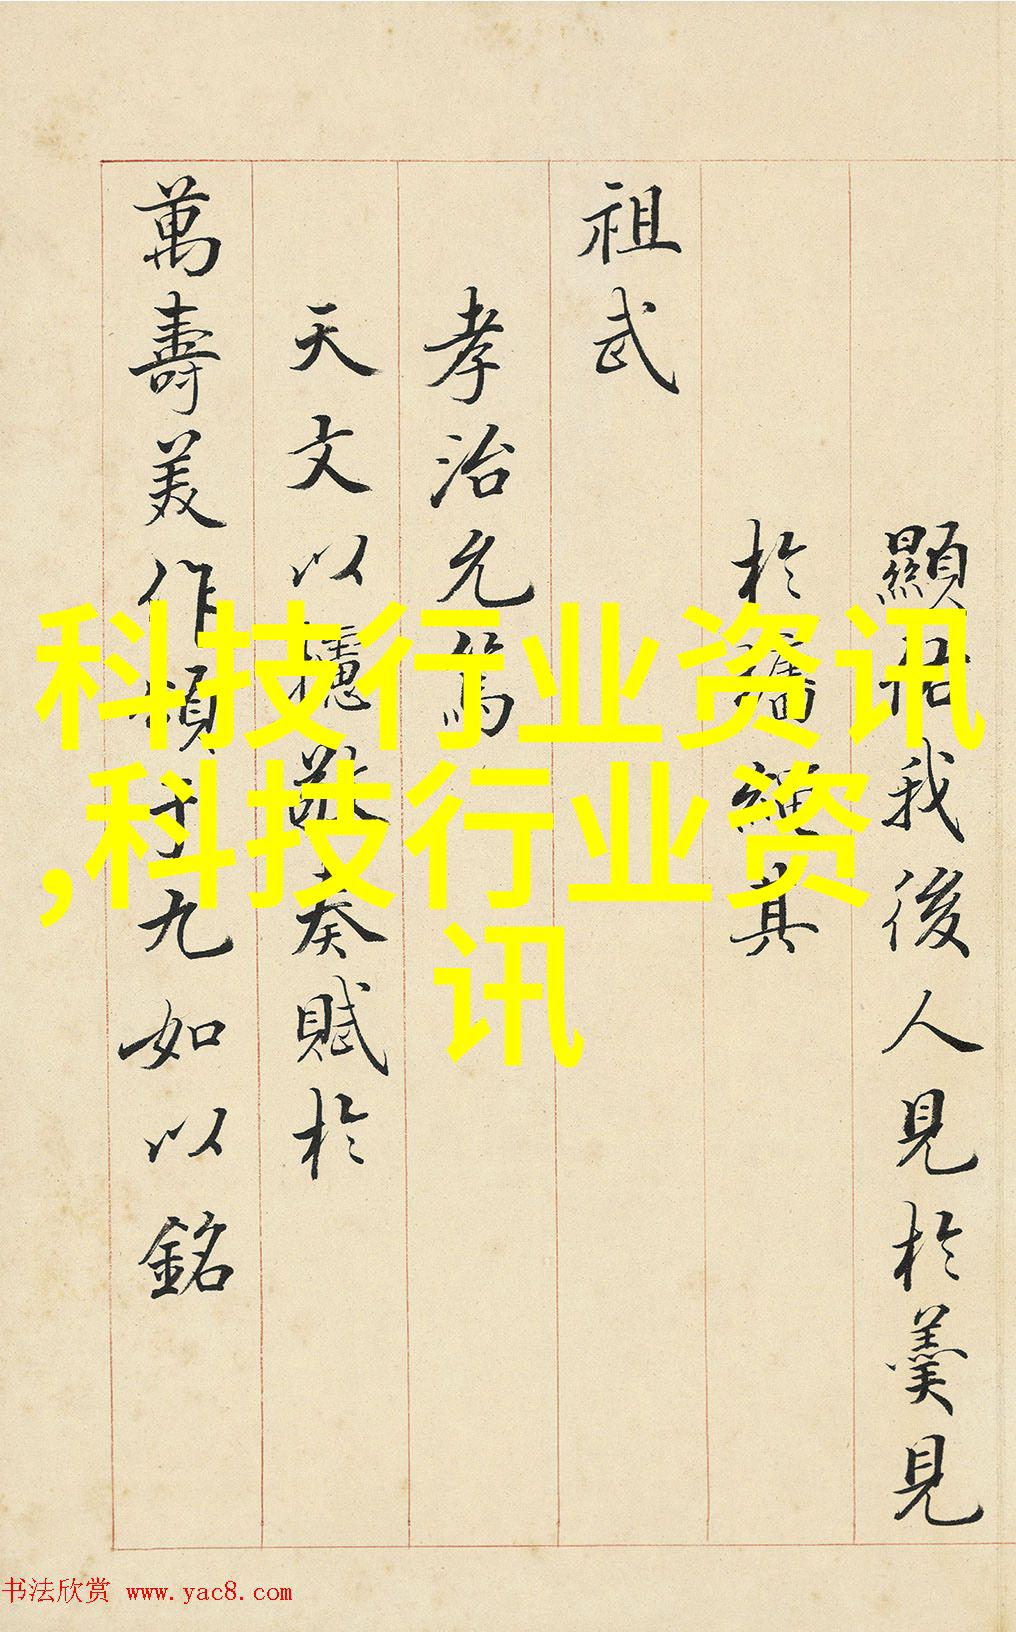 顯我後人見於羹見
於牆繩其
祖武
孝治允篤
天文以攄奏賦於
萬壽美作頌于九如以銘
科技行业资讯
,科技行业资
讯
书法欣赏 www.yac8.com